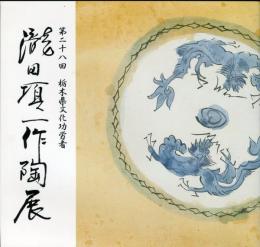 第二十八回 栃木県文化功労者
瀧田項一作陶展